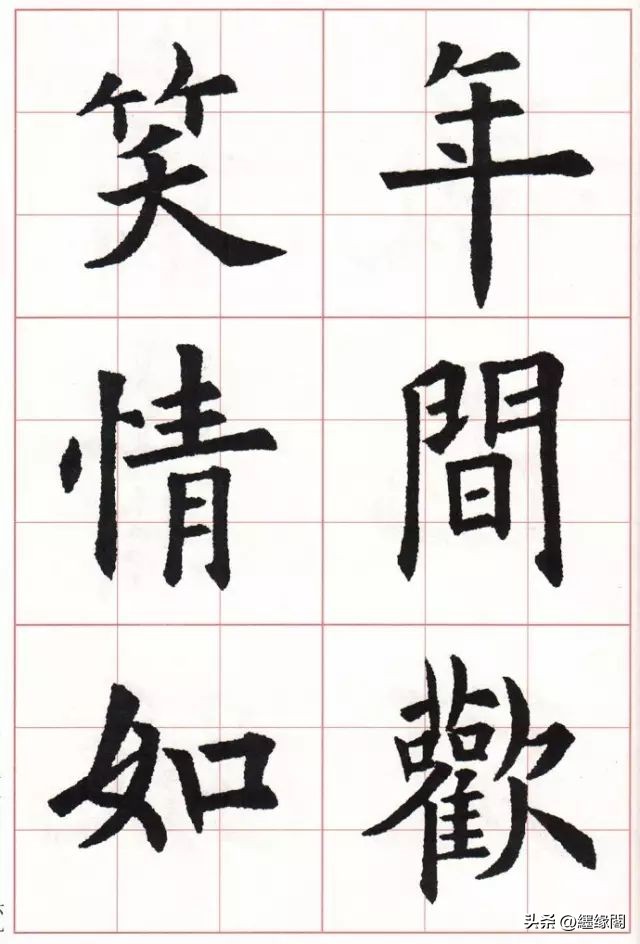 年間歡
笑情如
头条@纒缘閣